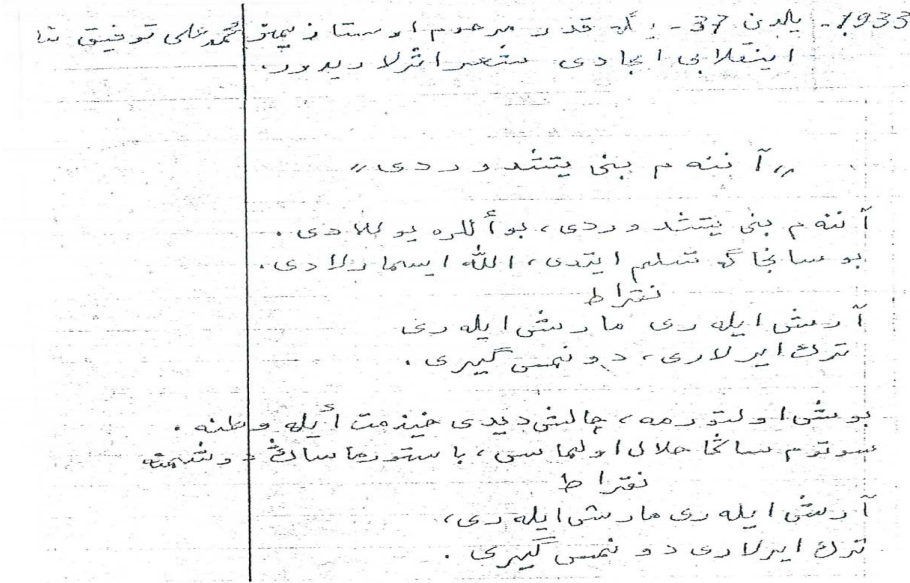 1933- یلدن 37- یلگه قدر مرحوم اوستازیمز محمدعلی توفیق نڭ
اینقلابی ایجادی شعر اثرلاریدور.
„آننه م بنی یتشدوردی"
آننه م بنی یتشدوردی، بوأللره یوللادی.
بو سانجاگه تسلم ایتدی، الله ایسمارلادی.
نقراط
آرش ایله ری مارش ایله ری
ترك ایرلاری، دونمس گیری.
بوش اولتورمه، چالش دیدی خیذمت أیله وطنه.
سوتوم ساڭا حلال اولماسی، باستورماساڭ دوشمنه
نقراط
آرش ایله ری مارش ایله ری،
ترك ایرلاری دونمس گیری.